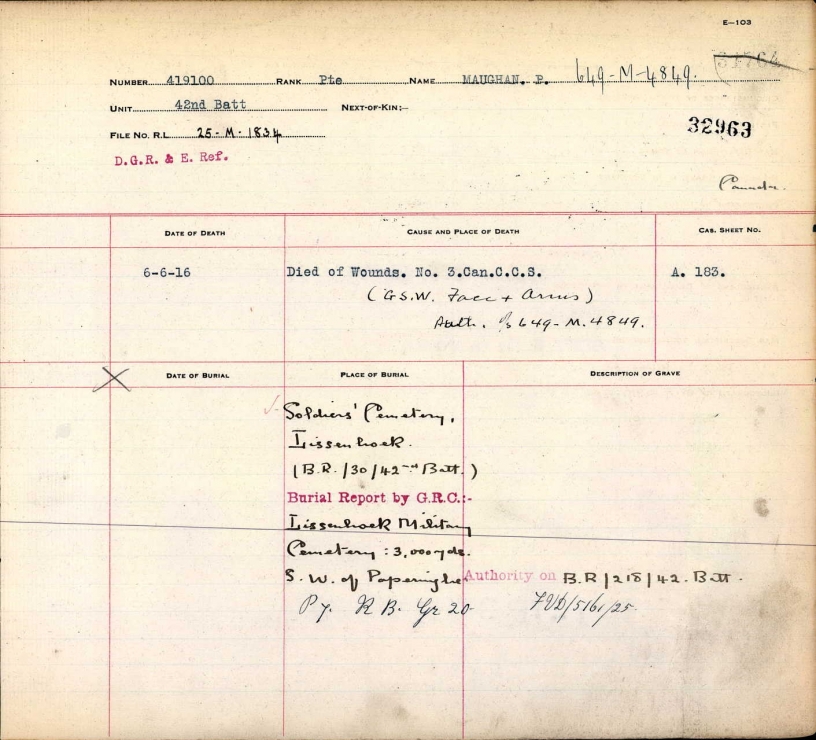 E—103
34764
NUMBER 419100 RANK Pte NAME MAUGHAN. P. 649-M-4849.
UNIT 42nd Batt NEXT-OF-KIN:—
32963
FILE NO. R.L. 25-M-1834
D.G.R. & E. Ref.
Canada.
DATE OF DEATH CAUSE AND PLACE OF DEATH CAS. SHEET NO.
6-6-16 Died of Wounds. No. 3.Can.C.C.S. A. 183.
(G.S.W. Face + Arms)
Auth. 649-M.4849.
DATE OF BURIAL PLACE OF BURIAL DESCRIPTION OF GRAVE
Soldiers' Cemetery,
Lissenhoek.
(B.R./30/42nd Batt.)
Burial Report by G.R.C.:-
Lissenhoek Military
Cemetery: 3,000 yds.
S.W. of Poperinghe Authority on B.R/218/42.Batt.
P 7. R B. Gr 20 /5161/25